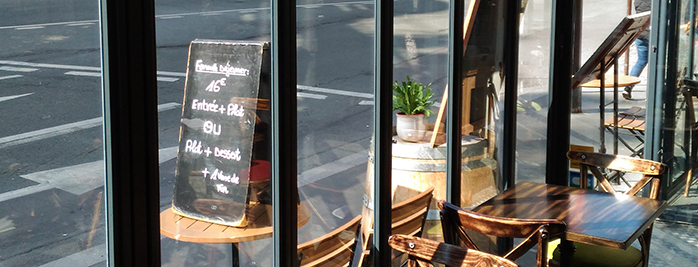 Formule déjeuner:
16€
Entrée + Plat
OU
Plat + Dessert
+ 1 Verre de
Vin